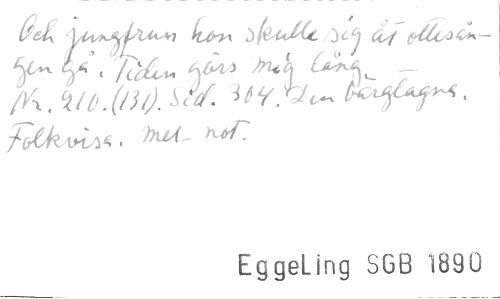 Och jungfrun hon skulle sig åt ottesån-
gen gå. Tiden görs mig lång.
Nr. 210. (131). Sid. 304. Den bärgtagna.
Folkvisa. Mel- not.
EggeLing SGB 1890